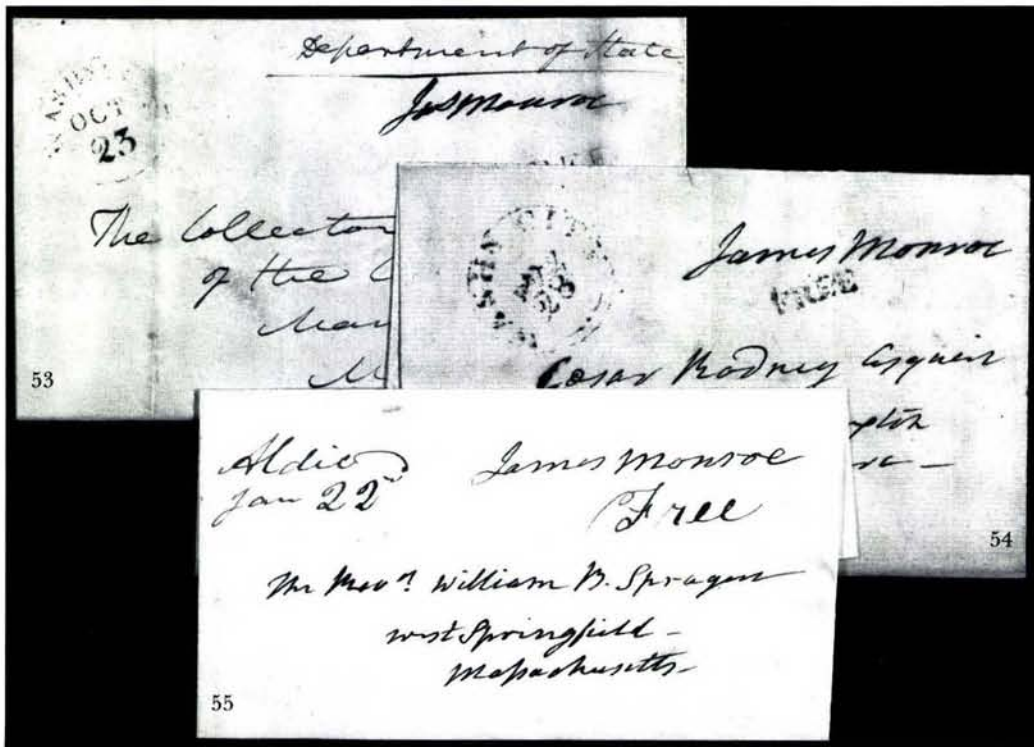 Department of State
Jas Monroe
WASHING
OCT
23
The Collector
of the C
Mar
M
53
James Monroe
FREE
WASHN CITY
MAY
23
Cesar Rodney Esquire
54
Aldie
Jan 22nd
James Monroe
Free
The Revd. William B. Sprague
West Springfield -
Massachusetts -
55